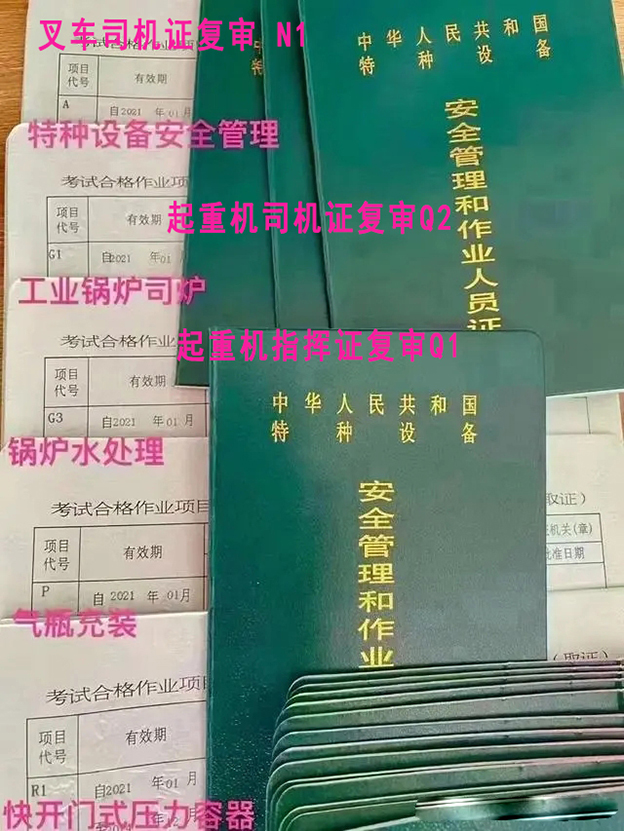 叉车司机证复审 N1
考试合格作业项
项目
代号
有效期
A
自2021 年 01月
特种设备安全管理
考试合格作业项
项目
代号
有效期
G1
自2021 年01
工业锅炉司炉
考试合格作业
项目
代号
有效期
G3
自2021 年 01月
锅炉水处理
考试合格作业项目
项目
代号
有效期
P
自 2021 年 01月
气瓶充装
考试合格作业项目
项目
代号
有效期
R1
自2021 年 01月
快开门式压力容器
中华人民共和国
特种设备
安全管理和作业人员证
起重机司机证复审Q2
起重机指挥证复审Q1
中华人民共和国
特种设备
安全管理和作业
取证）
机关(章)
准日期
（取证）